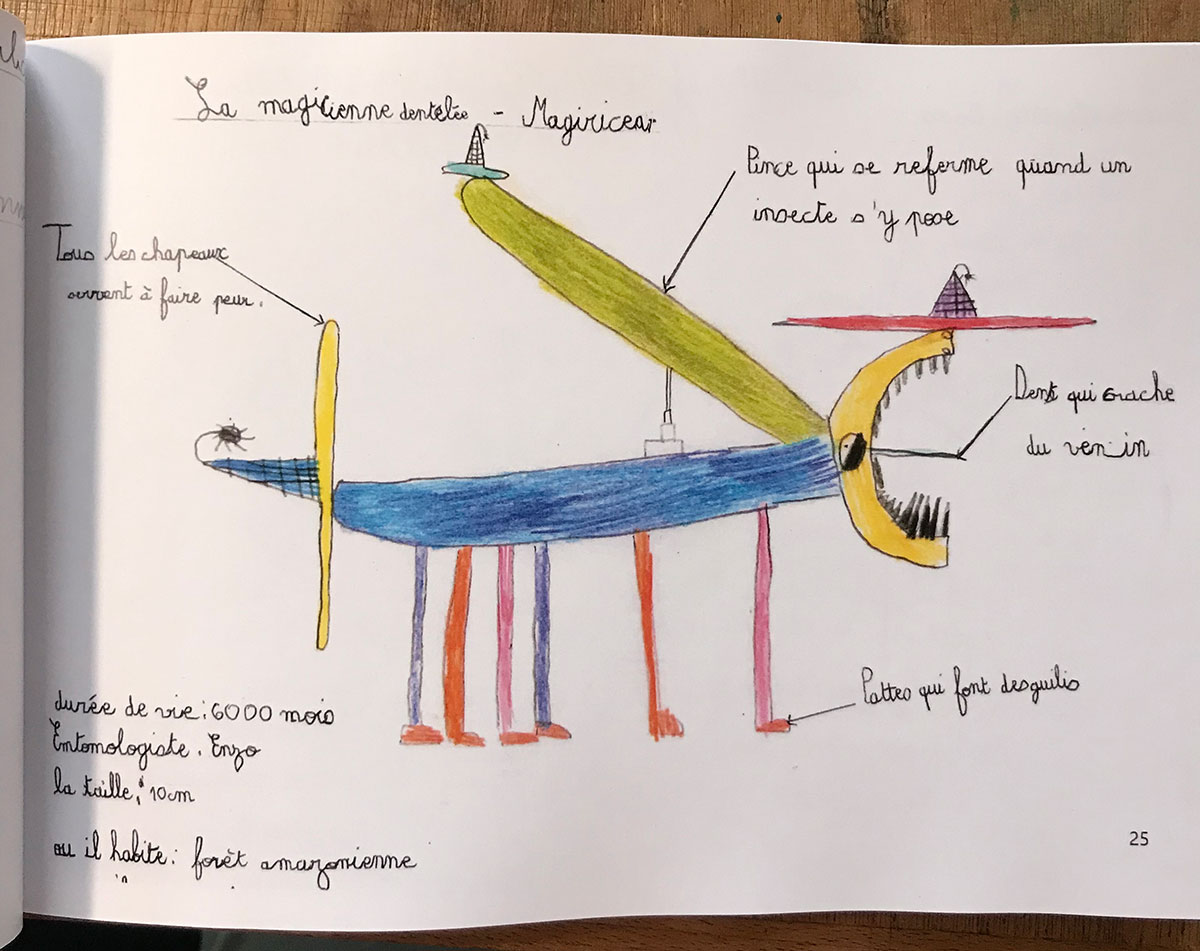 La magicienne dentelée - Magiricear
Pince qui se referme quand un
insecte s'y pose
Tous les chapeaux
servent à faire peur.
Dent qui crache
du venin
Pattes qui font des guilis
durée de vie : 6000 mois
Entomologiste . Enzo
la taille : 10 cm
ou il habite : forêt amazonienne
25